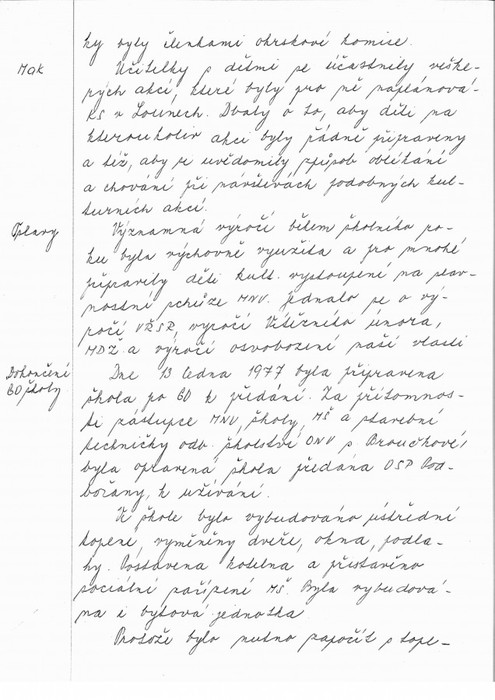 ky byly členkami okrskové komice.
MDK
Učitelky s dětmi se účastnily veške-
rých akcí, které byly pro ně naplánová-
KS v Lounech. Dbaly o to, aby děti na
kteroukoliv akci byly řádně připraveny
a též, aby se uvědomily způsob oblékání
a chování při návštěvách podobných kul-
turních akcí.
Oslavy
Významná výročí během školního ro-
ku byla výchovně využita a pro mnohé
připravily děti kult. vystoupení na slav-
nostní schůze MNV. Jednalo se o vý-
ročí VŘSR, výročí Vítězného února,
MDŽ a výročí osvobození naší vlasti
Dokončení
GO školy
Dne 13 ledna 1977 byla připravena
škola po GO k předání. Za přítomnos-
ti zástupce MNV, školy, MŠ a stavební
techničky odb. školství ONV s Broučkové,
byla opravená škola předána OSP Pod-
bořany, k užívání.
Ve škole bylo vybudováno ústřední
topení, vyměněny dveře, okna, podla-
hy. Postavena kotelna a přistavěno
sociální zařízení MŠ. Byla vybudová-
na i bytová jednotka
Protože bylo nutno započít s tope-